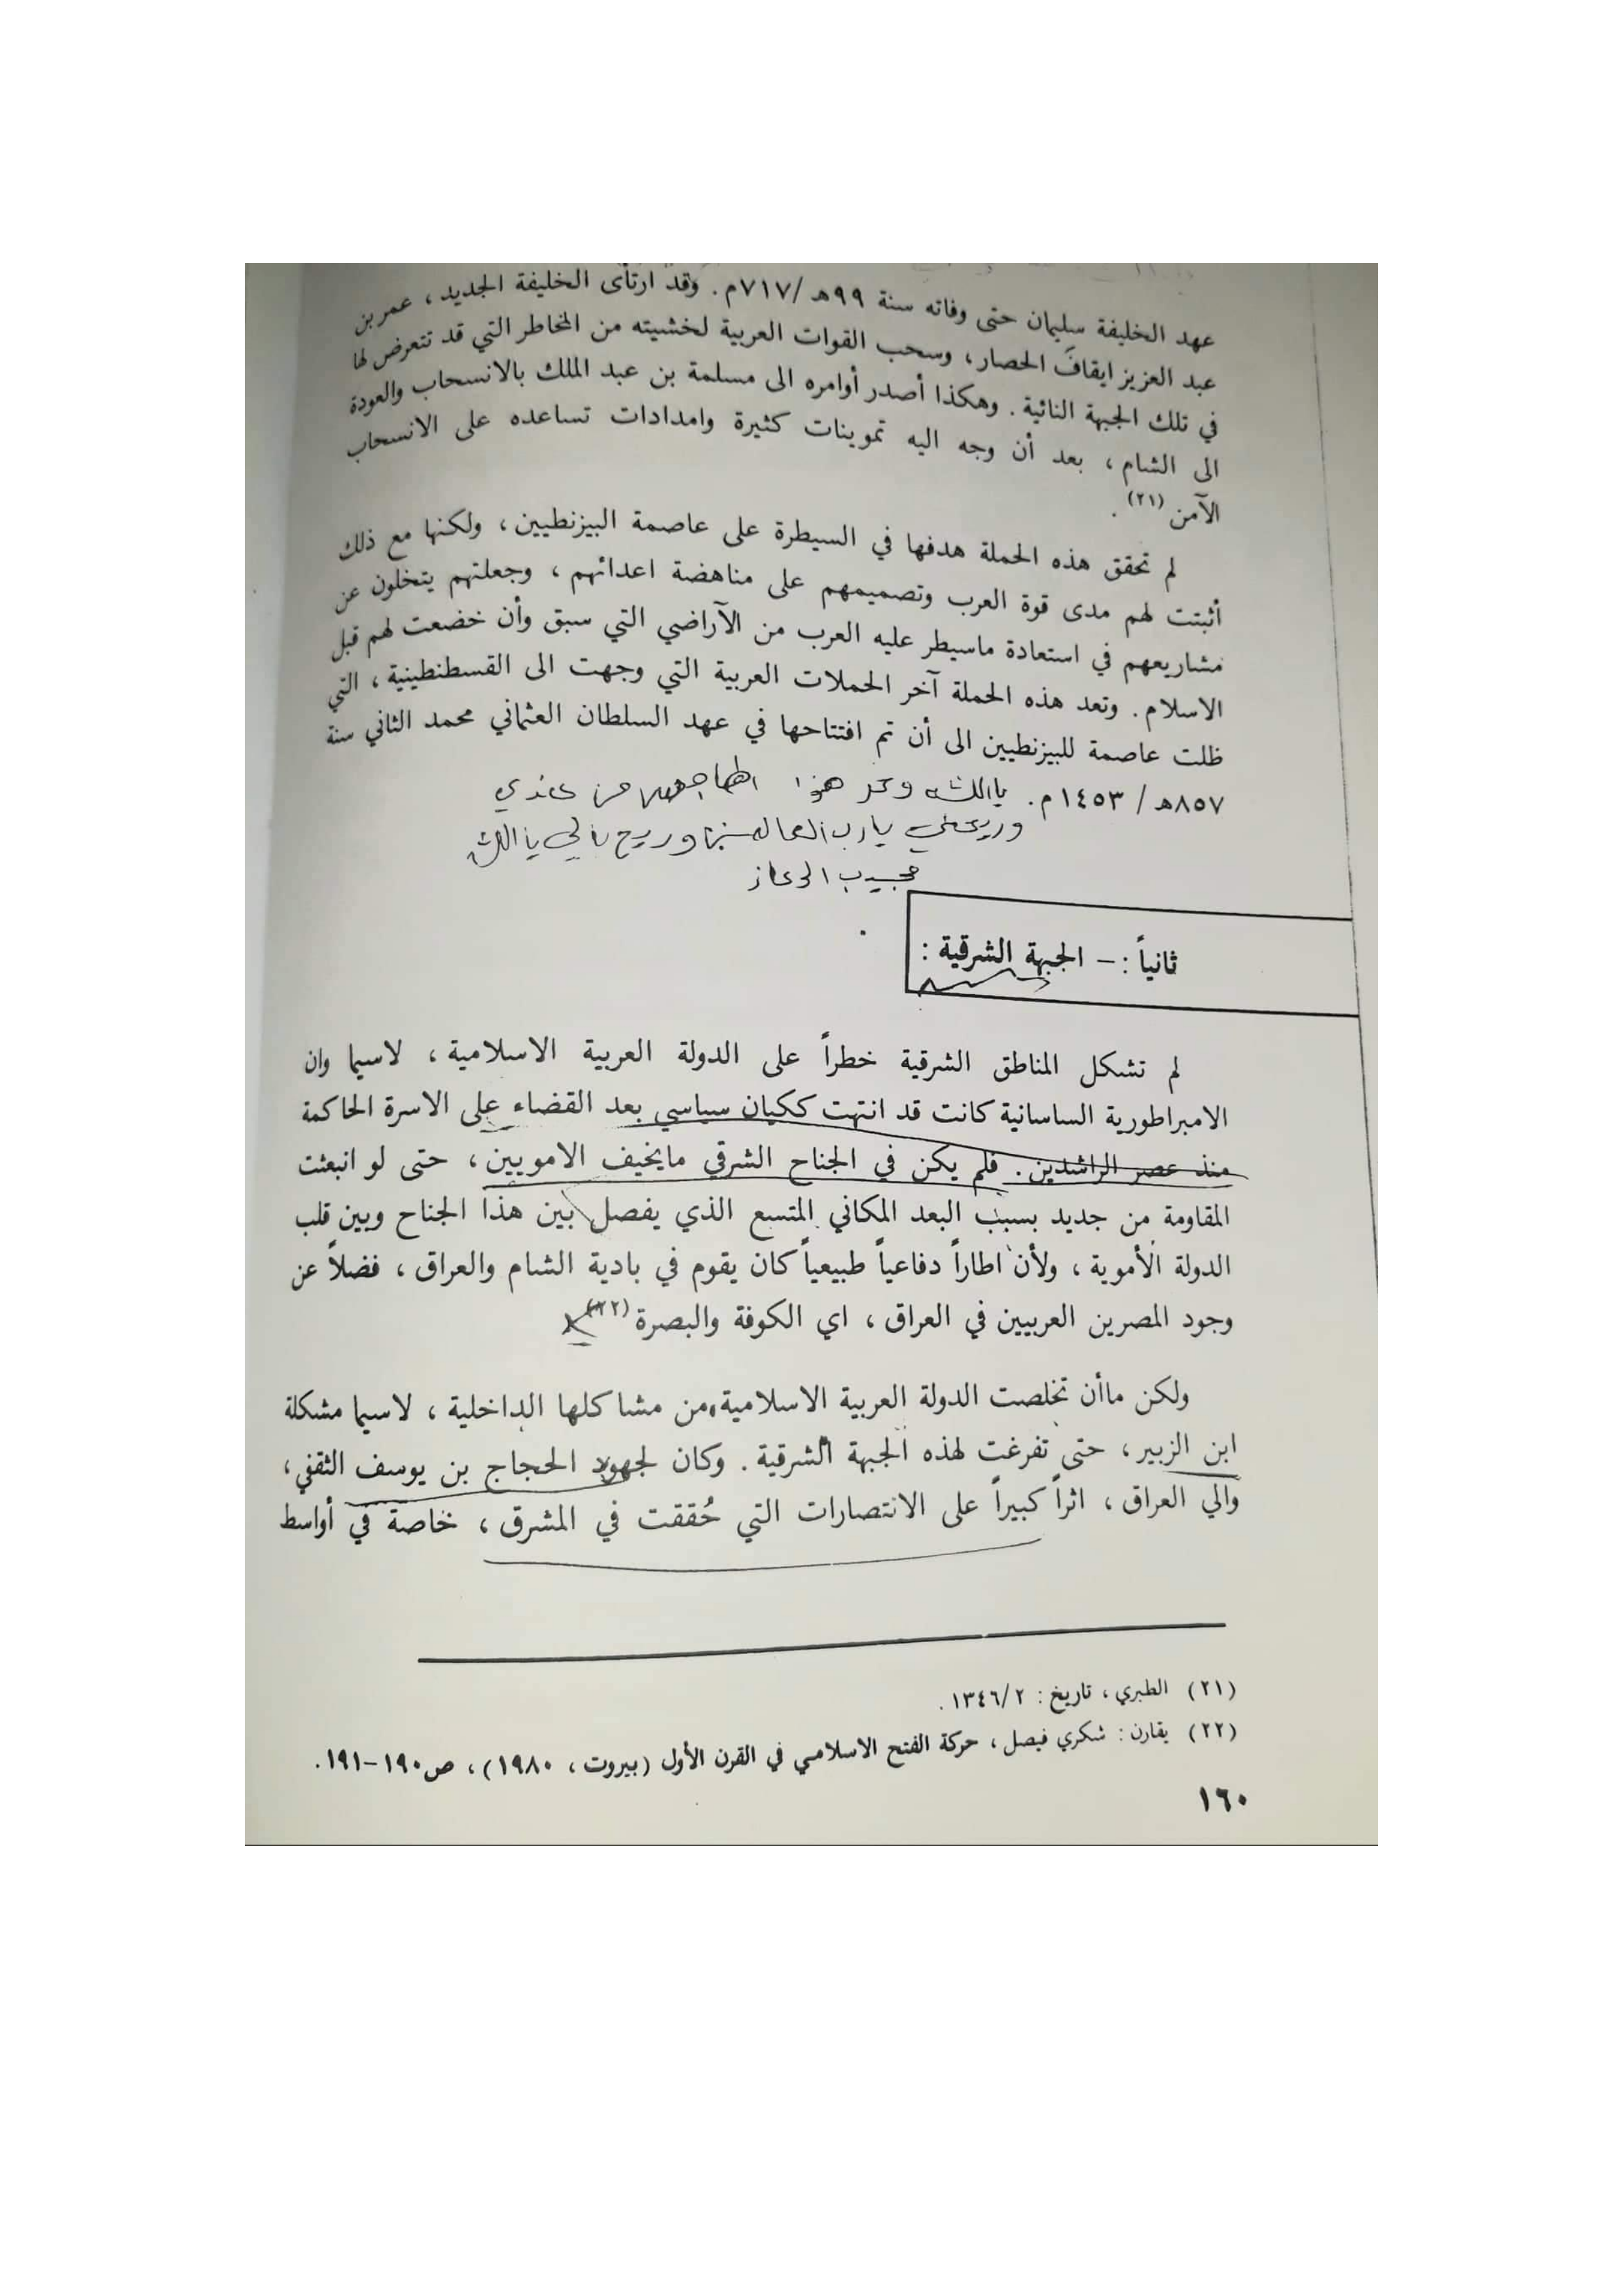 عهد الخليفة سليمان حتى وفاته سنة ٩٩هـ/٧١٧م. وقد ارتأى الخليفة الجديد، عمر بن
عبد العزيز ايقاف الحصار، وسحب القوات العربية لخشيته من المخاطر التي قد تتعرض لها
في تلك الجبهة النائية. وهكذا أصدر أوامره الى مسلمة بن عبد الملك بالانسحاب والعودة
الى الشام، بعد أن وجه اليه تموينات كثيرة وامدادات تساعده على الانسحاب
الآمن (٢١).
لم تحقق هذه الحملة هدفها في السيطرة على عاصمة البيزنطيين، ولكنها مع ذلك
أثبتت لهم مدى قوة العرب وتصميمهم على مناهضة اعدائهم، وجعلتهم يتخلون عن
مشاريعهم في استعادة ماسيطر عليه العرب من الآراضي التي سبق وأن خضعت لهم قبل
الاسلام. وتعد هذه الحملة آخر الحملات العربية التي وجهت الى القسطنطينية، التي
ظلت عاصمة للبيزنطيين الى أن تم افتتاحها في عهد السلطان العثماني محمد الثاني سنة
٨٥٧هـ/١٤٥٣م. ياالله من عندي
وريحني يارب العالمين وريح بالي ياالله
مجيب الدعاء
ثانياً :– الجبهة الشرقية :
لم تشكل المناطق الشرقية خطراً على الدولة العربية الاسلامية، لاسيما وان
الامبراطورية الساسانية كانت قد انتهت ككيان سياسي بعد القضاء على الاسرة الحاكمة
منذ عصر الراشدين. فلم يكن في الجناح الشرقي مايخيف الامويين، حتى لو انبعثت
المقاومة من جديد بسبب البعد المكاني المتسع الذي يفصل بين هذا الجناح وبين قلب
الدولة الأموية، ولأن اطاراً دفاعياً طبيعياً كان يقوم في بادية الشام والعراق، فضلاً عن
وجود المصرين العربيين في العراق، اي الكوفة والبصرة (٢٢)
ولكن ماأن تخلصت الدولة العربية الاسلامية من مشاكلها الداخلية، لاسيما مشكلة
ابن الزبير، حتى تفرغت لهذه الجبهة الشرقية. وكان لجهود الحجاج بن يوسف الثقفي،
والي العراق، اثراً كبيراً على الانتصارات التي حُققت في المشرق، خاصة في أواسط
(٢١) الطبري، تاريخ: ١٣٤٦/٢.
(٢٢) يقارن: شكري فيصل، حركة الفتح الاسلامي في القرن الأول (بيروت، ١٩٨٠)، ص١٩٠–١٩١.
١٦٠